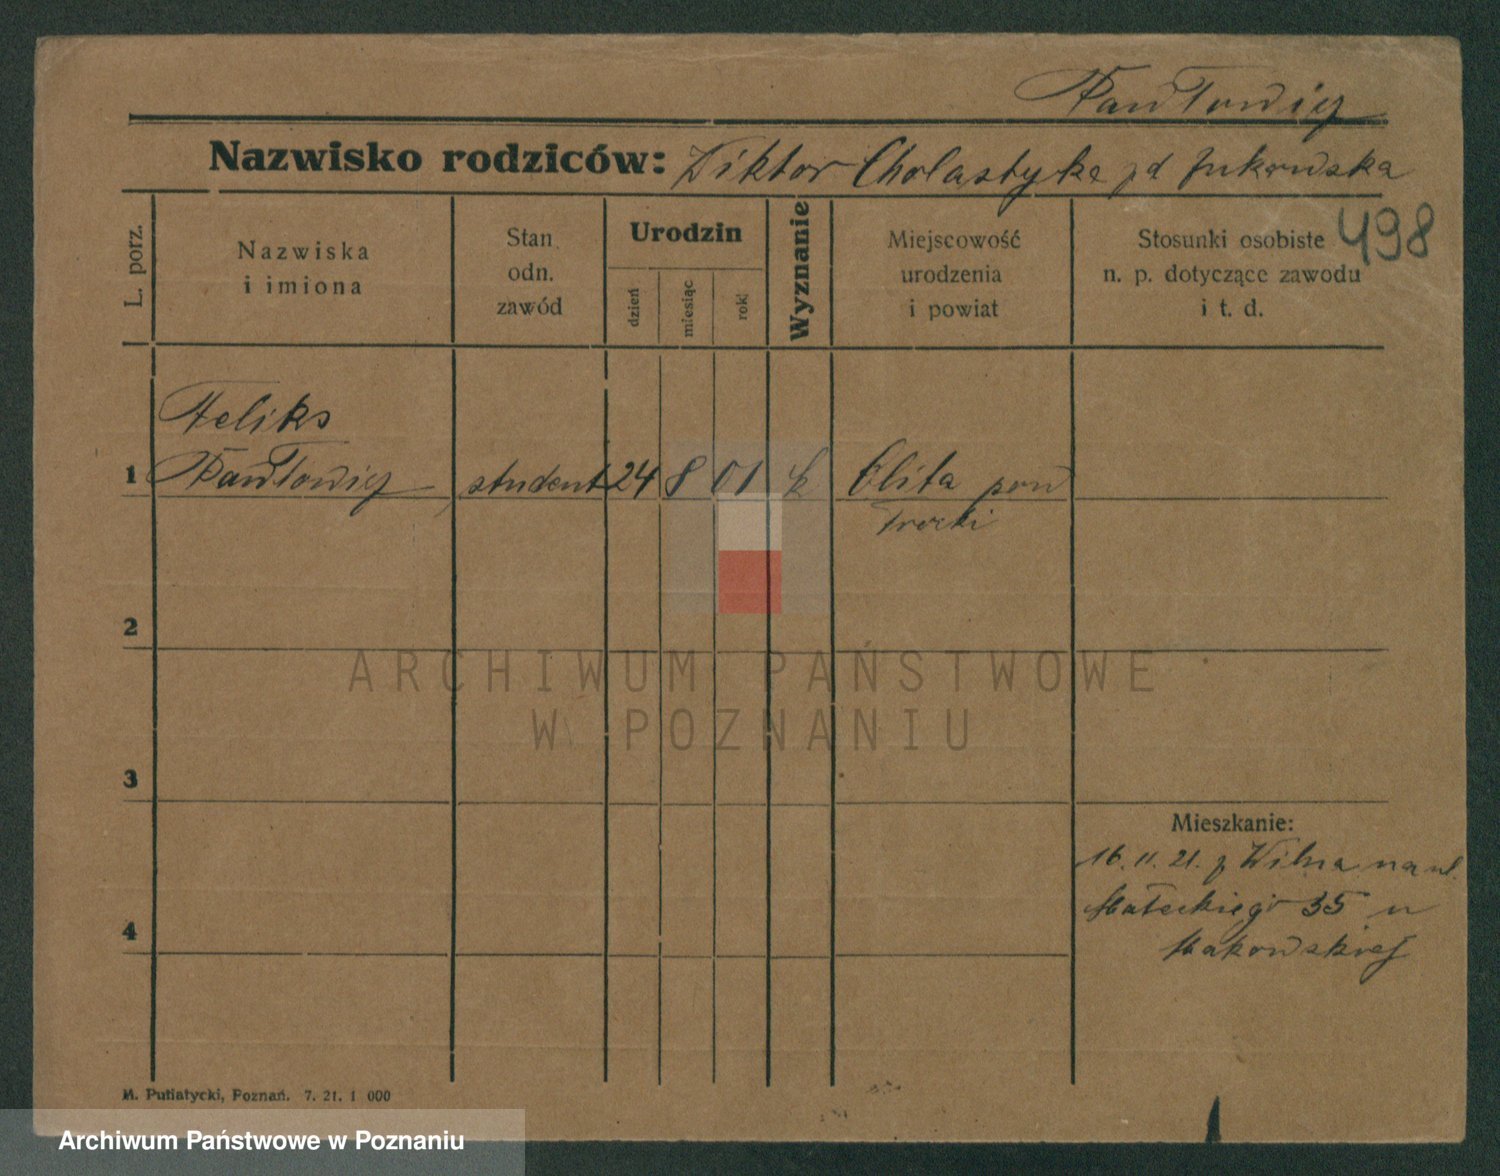 Pawłowicz
Nazwisko rodziców: Wiktor Cholastyka zd Żukowska
498
L. porz.
Nazwiska
i imiona
Stan
odn.
zawód
Urodzin
dzień
miesiąc
rok
Wyznanie
Miejscowość
urodzenia
i powiat
Stosunki osobiste
n. p. dotyczące zawodu
i t. d.
Feliks
1 Pawłowicz student 24 8 01 k Olita pow
Trocki
2
ARCHIWUM PAŃSTWOWE
W POZNANIU
3
Mieszkanie:
16.11.21. z Wilna na ul.
Małeckiego 35 u
4
Makowskiej
M. Putiatycki, Poznań. 7. 21. 1 000
Archiwum Państwowe w Poznaniu